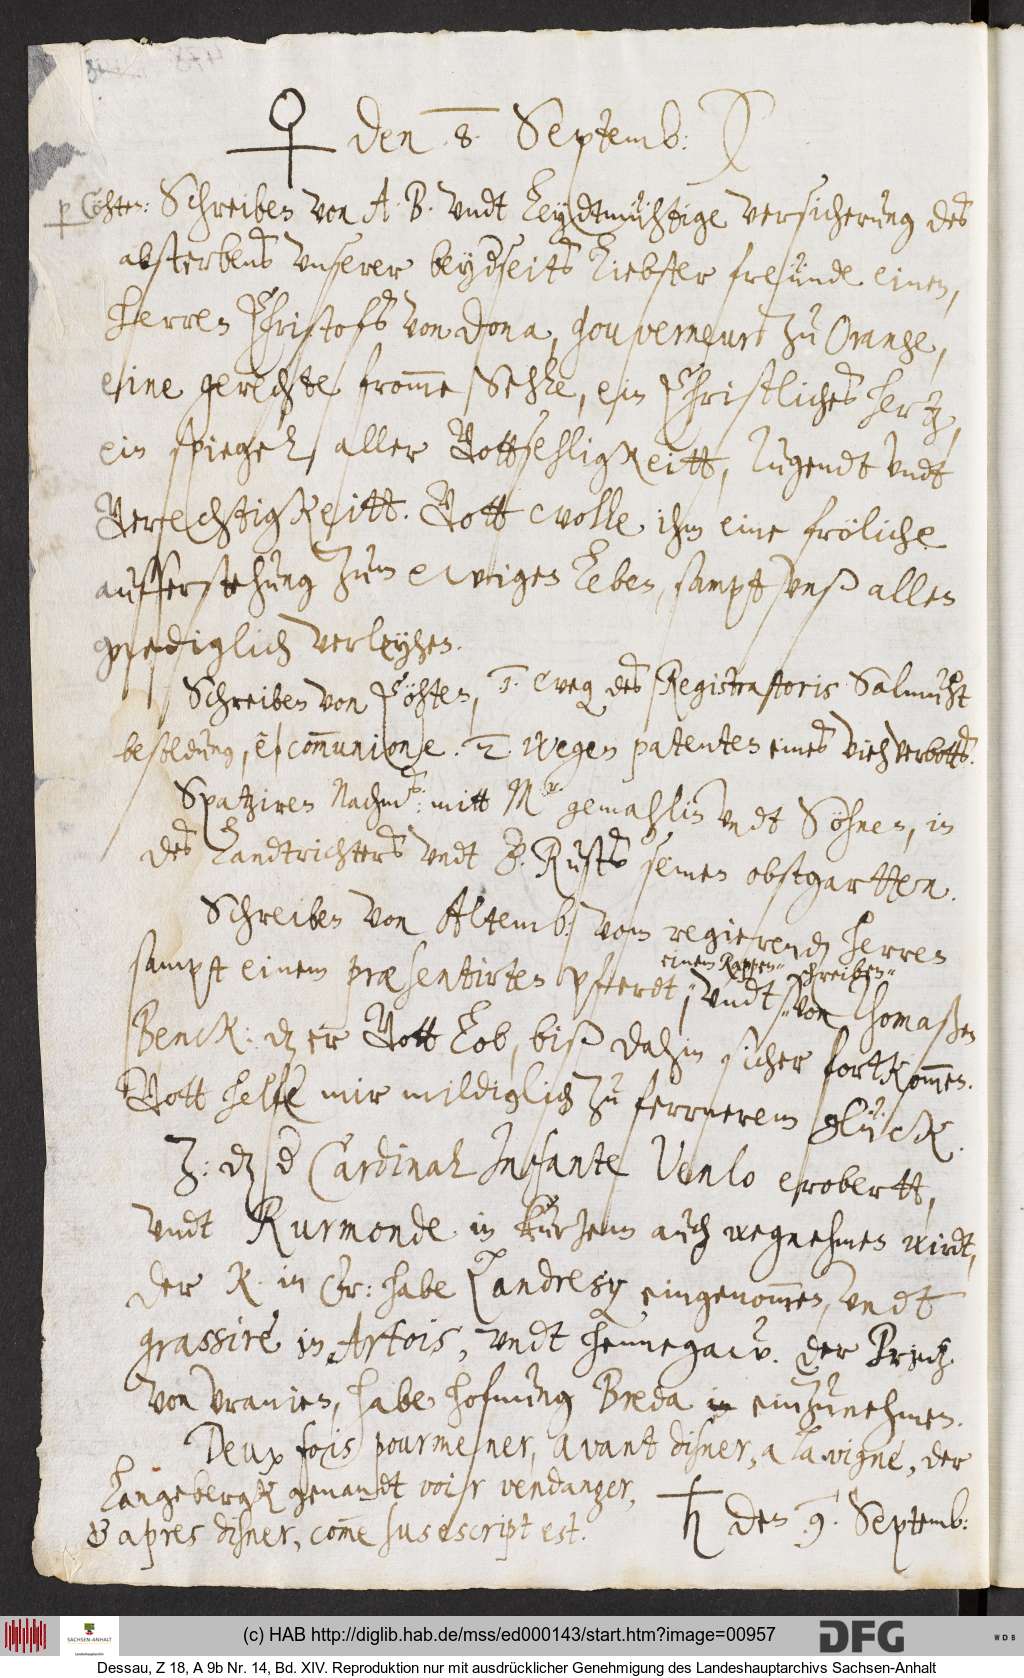 ♀ den 8. Septemb:
p Cöhten: Schreiben von A. B. vndt leydtmühtige versicherung des
absterbens vnserer beydseits liebster freünde einen,
herren Christofs von Dona, gouverneurs zu Orange,
eine gerechte from̅e Sehle, ein Christliches hertz,
ein spiegel aller Gottsehligkeitt, Tugendt vndt
Gerechtigkeitt. Gott wolle ihm eine fröliche
aufferstehung zum ewigen leben, sampt vnß allen
gnediglich verleyhen.
Schreiben von Cöhten, 1. weg. des Registratoris Salmuht
besoldung, è communione. 2. wegen patenten eines viehverbotts.
Spatziren Nachm: mitt Mr gemahlin vndt Söhnen, in
des Landtrichters vndt B. Rusts seinen obstgartten.
Schreiben von Altemb: vom regierenden herren
sampt einem præsentirten pferdt, vndt von Thomaßen
einem Rappen schreiben
Benck: dz er Gott lob, biß dahin sicher fortkom̅en.
Gott helfe mir mildiglich zu fernerem glück.
Z: dz d Cardinal Infante Venlo erobertt,
vndt Rurmonde in kurzem auch wegnehmen wirdt,
der K. in Fr: habe Landresy eingenom̅en, vndt
grassire in Artois, vndt Hennegaw. der Printz
von Vranien, habe hofnung Breda einzunehmen.
Deux fois pourmener, avant disner, a la vigne, der
Langeberg genandt voir vendanger,
& apres disner, com̅e susescript est.
♄ den 9. Septemb:
(c) HAB http://diglib.hab.de/mss/ed000143/start.htm?image=00957
SACHSEN-ANHALT
DFG
WDB
Dessau, Z 18, A 9b Nr. 14, Bd. XIV. Reproduktion nur mit ausdrücklicher Genehmigung des Landeshauptarchivs Sachsen-Anhalt